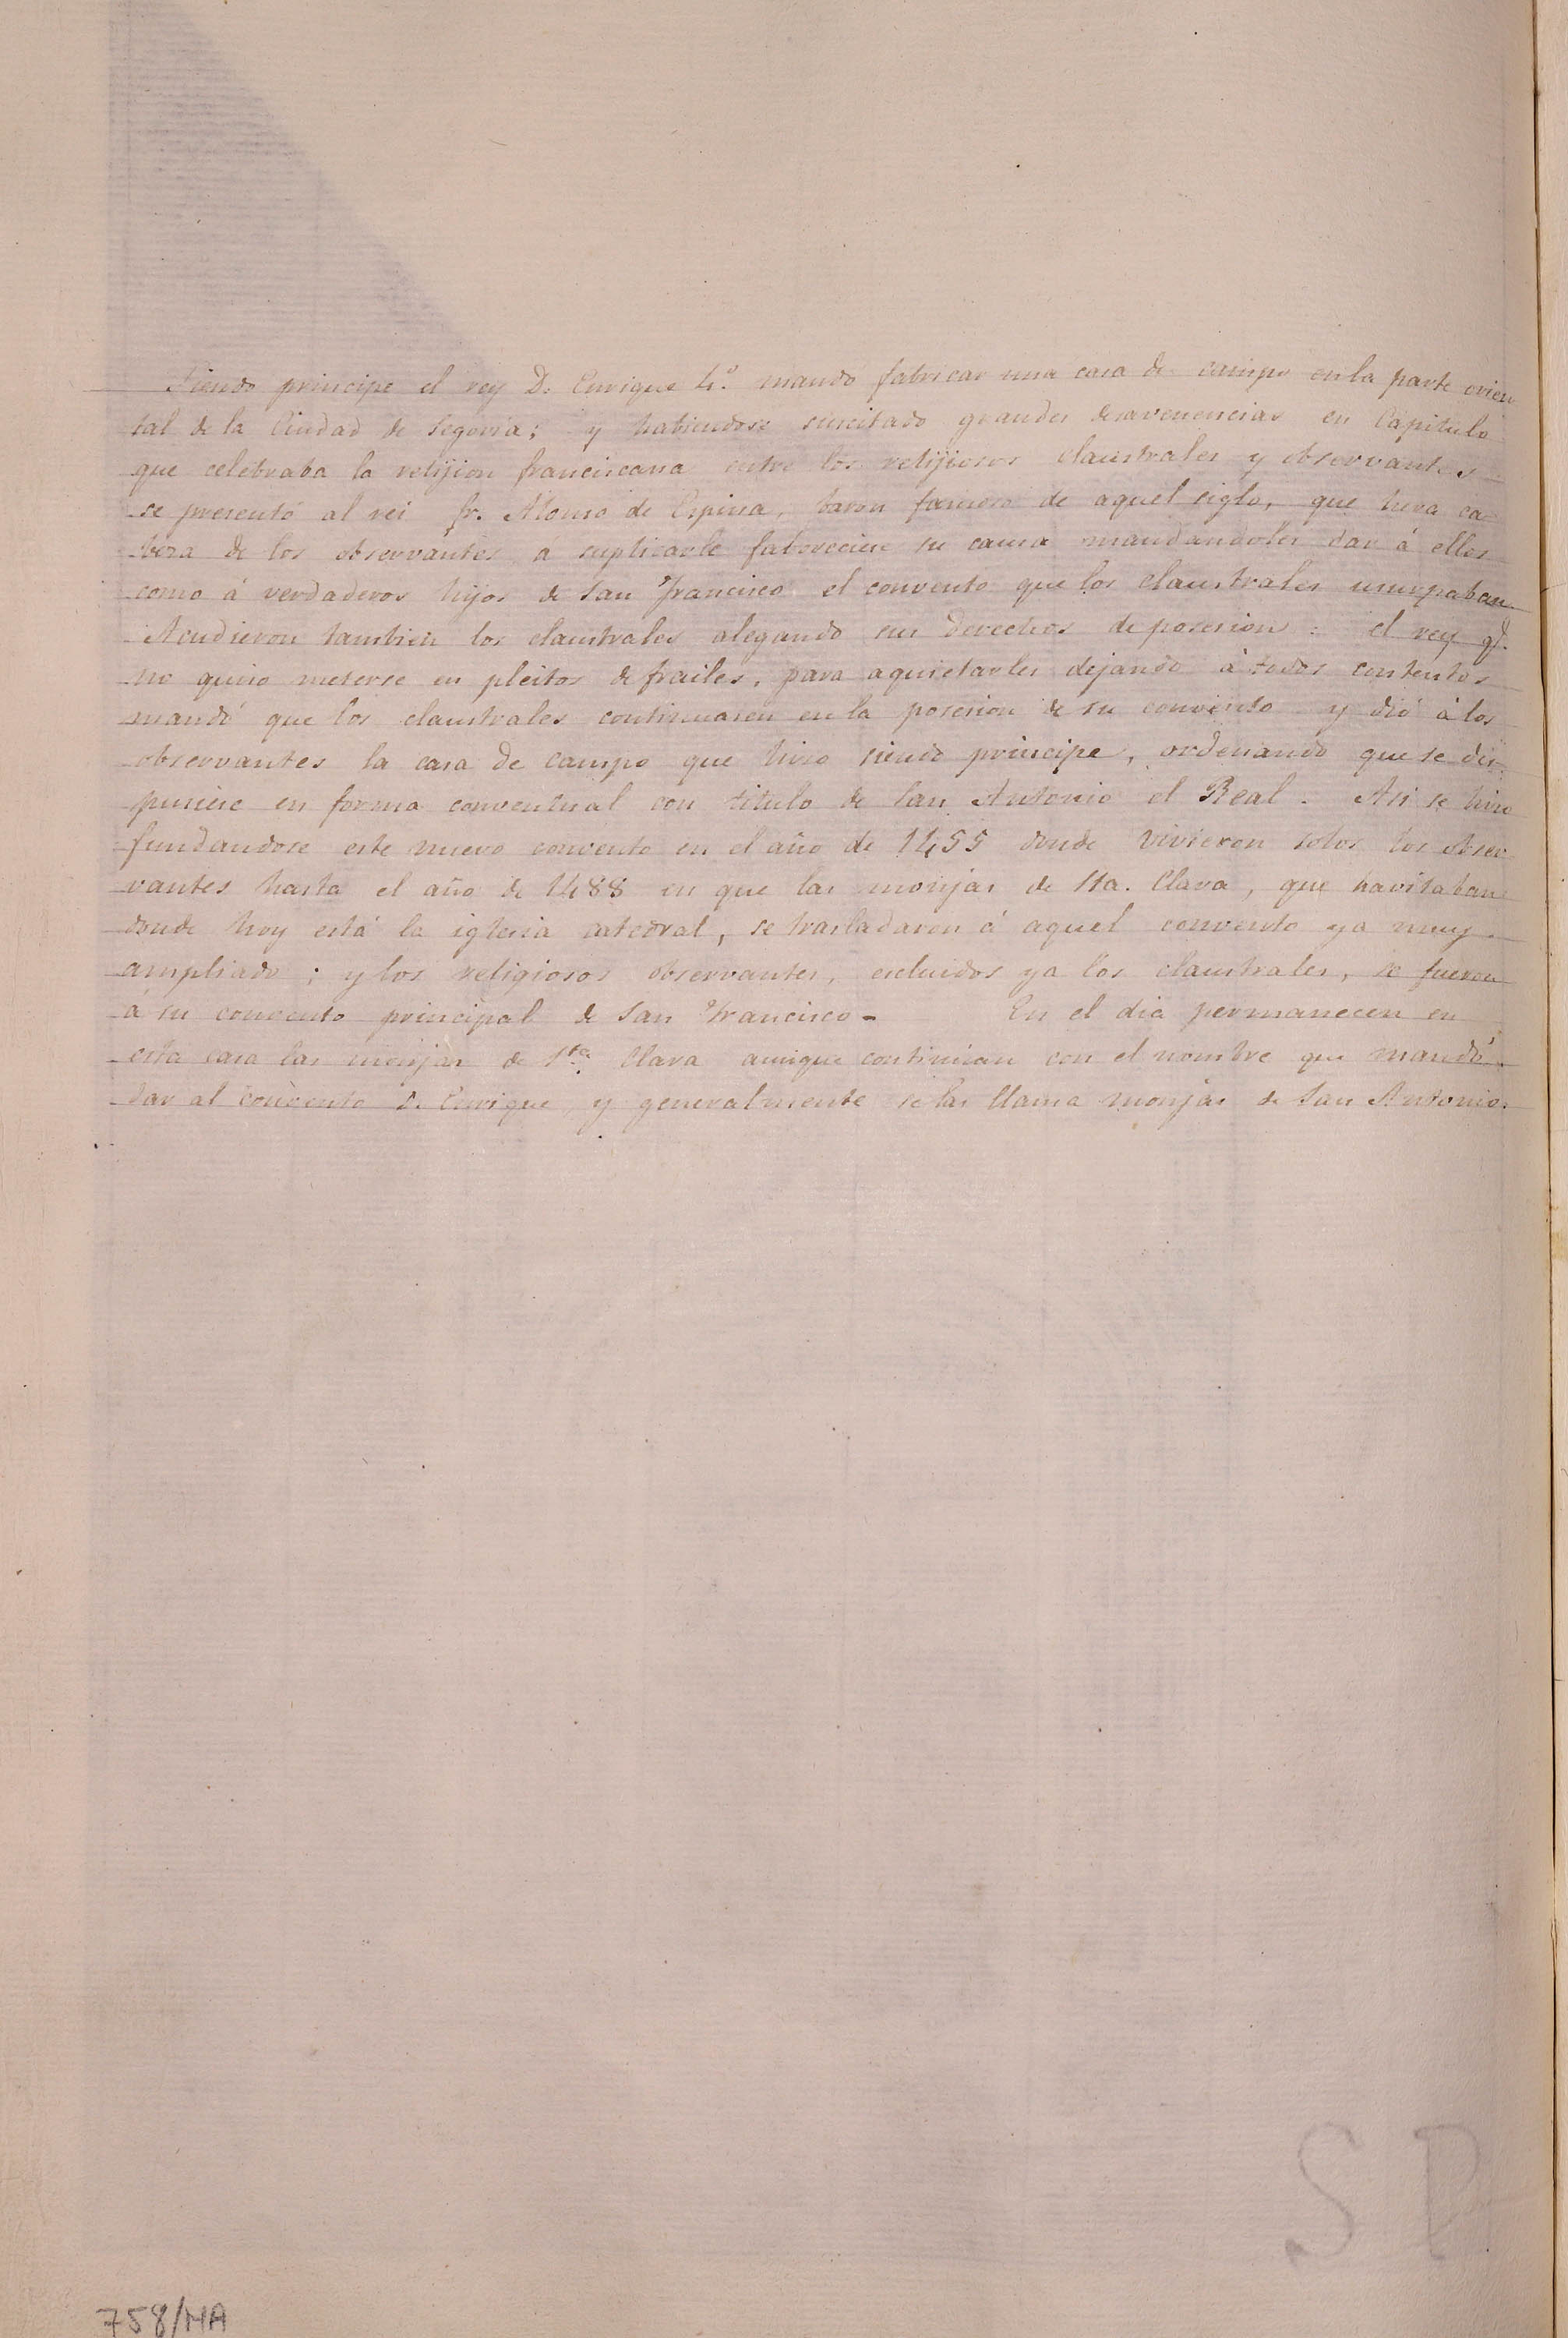 Siendo principe el rey D. Enrique 4.º mandó fabricar una casa de campo en la parte orien
tal de la Ciudad de Segovia; y habiendose suscitado grandes desavenencias en Capitulo
que celebraba la relijion franciscana entre los relijiosos claustrales y observantes
se presentó al rei fr. Alonso de Espina, baron famoso de aquel siglo, que hera ca
beza de los observantes á suplicarle faboreciese su causa mandandoles dar á ellos
como á verdaderos hijos de San Francisco el convento que los claustrales usurpaban.
Acudieron tambien los claustrales alegando sus derechos de posesion: el rey q.e
no quiso meterse en pleitos de frailes, para aquietarles dejando á todos contentos
mandó que los claustrales continuasen en la posesion de su convento y dió á los
observantes la casa de campo que hizo siendo principe, ordenando que se dis
pusiese en forma conventual con titulo de San Antonio el Real. Asi se hizo
fundandose este nuevo convento en el año de 1455 donde vivieron solos los obser
vantes hasta el año de 1488 en que las monjas de Sta. Clara, que havitaban
donde hoy está la iglesia catedral, se trasladaron á aquel convento ya muy
ampliado; y los religiosos observantes, escluidos ya los claustrales, se fueron
á su convento principal de San Francisco- En el dia permanecen en
esta casa las monjas de Sta. Clara aunque continúan con el nombre que mandó
dar al convento D. Enrique y generalmente se las llama monjas de San Antonio.
S P
758/MA